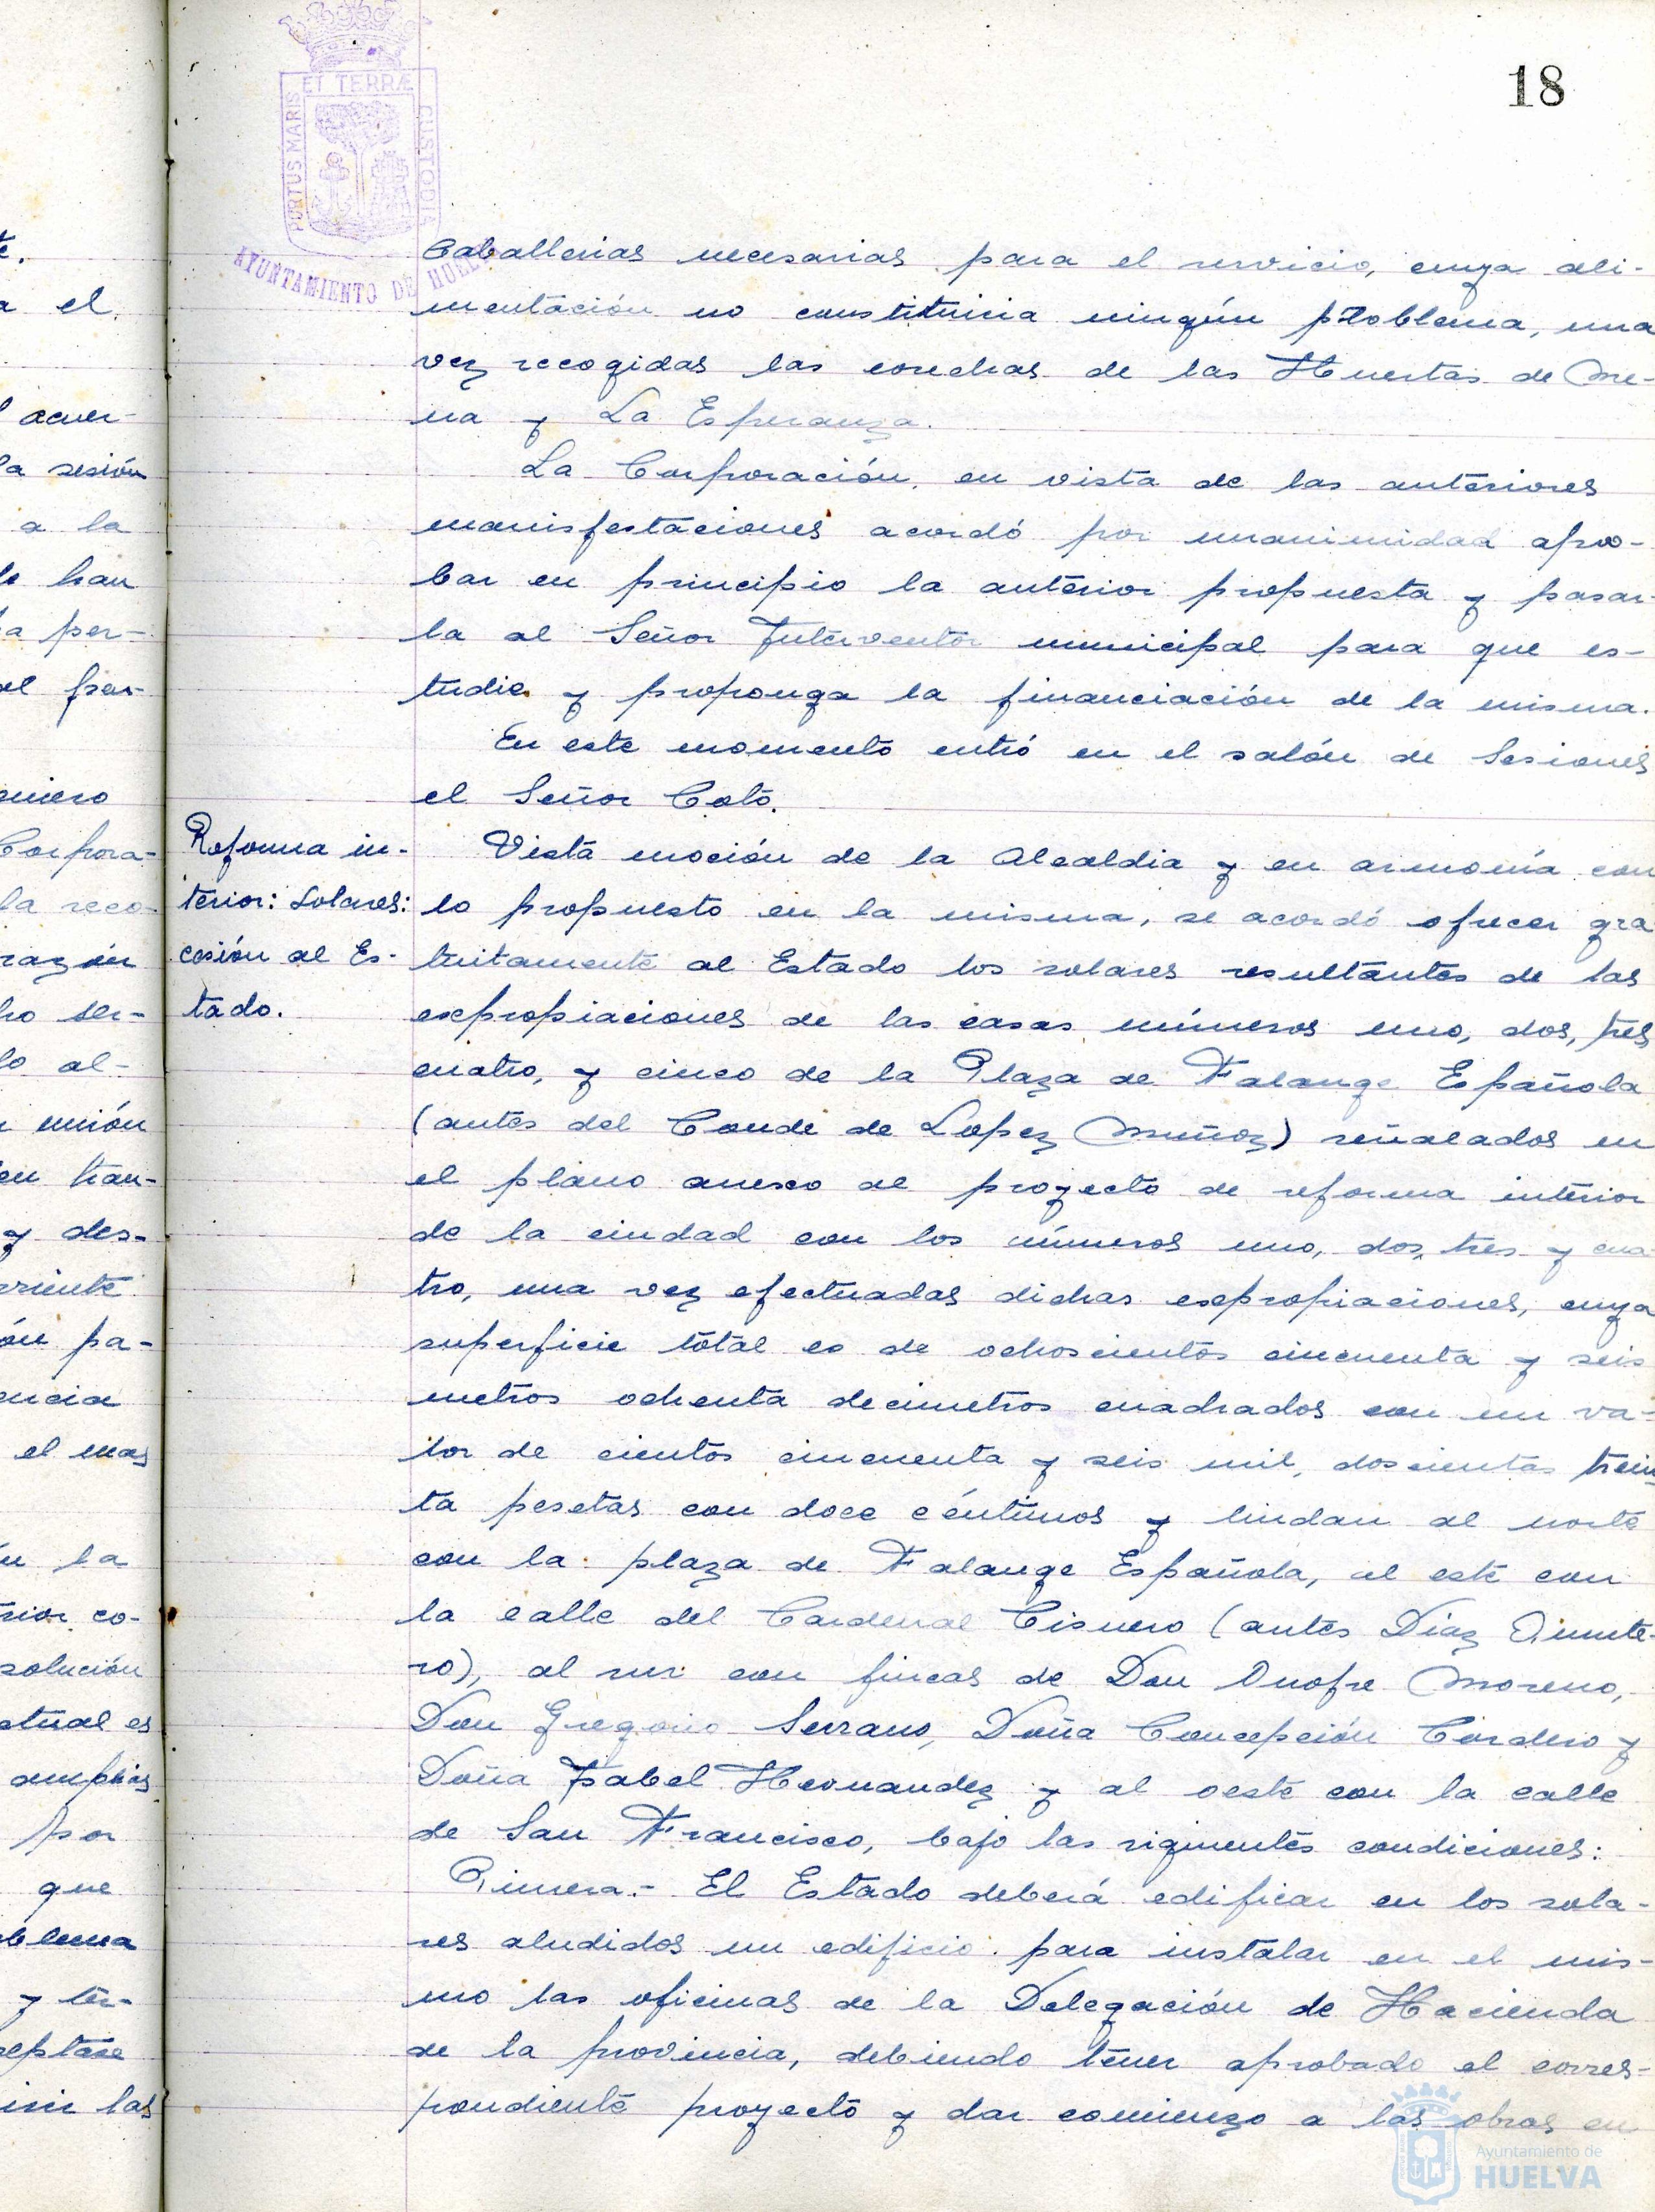 18
PORTUS MARIS
ET TERRÆ
CUSTODIA
AYUNTAMIENTO DE HUELVA
te.
a el
acuer-
la sesión
a la
han
a per-
el per-
eniero
Corpora-
la reco-
razón
ho ser-
lo al-
unión
en tran-
y des-
rriente
ón pa-
encia
el mas
la
rior co-
solución
actual es
amplias
por
que
blema
y ter-
eptase
las
caballerias necesarias para el servicio, cuya ali-
mentación no constituiria ningún problema, una
vez recogidas las cosechas de las Huertas de Me-
na y La Esperanza.
La Corporación, en vista de las anteriores
manisfestaciones acordó por unanimidad apro-
bar en principio la anterior propuesta y pasar-
la al Señor Interventor municipal para que es-
tudie y proponga la financiación de la misma.
En este momento entró en el salón de Sesiones
el Señor Coto.
Reforma in-
terior: Solares:
cesión al Es-
tado.
Vista moción de la Alcaldia y en armonía con
lo propuesto en la misma, se acordó ofrecer gra
tuitamente al Estado los solares resultantes de las
expropiaciones de las casas números uno, dos, tres
cuatro, y cinco de la Plaza de Falange Española
(antes del Conde de Lopez Muñoz) señalados en
el plano anexo al proyecto de reforma interior
de la ciudad con los números uno, dos, tres y cua-
tro, una vez efectuadas dichas expropiaciones, cuya
superficie total es de ochoscientos cincuenta y seis
metros ochenta decimetros cuadrados con un va-
lor de cientos cincuenta y seis mil, doscientas trein
ta pesetas con doce céntimos y lindan al norte
con la plaza de Falange Española, al este con
la calle del Cardenal Cisnero (antes Díaz Quinte-
ro), al sur con fincas de Don Onofre Moreno,
Don Gregorio Serrano, Doña Concepción Cordero y
Doña Isabel Hernandez y al oeste con la calle
de San Francisco, bajo las siguientes condiciones:
Primera.- El Estado deberá edificar en los sola-
res aludidos un edificio para instalar en el mis-
mo las oficinas de la Delegación de Hacienda
de la provincia, debiendo tener aprobado el corres-
pondiente proyecto y dar comienzo a las obras en
Ayuntamiento de
HUELVA